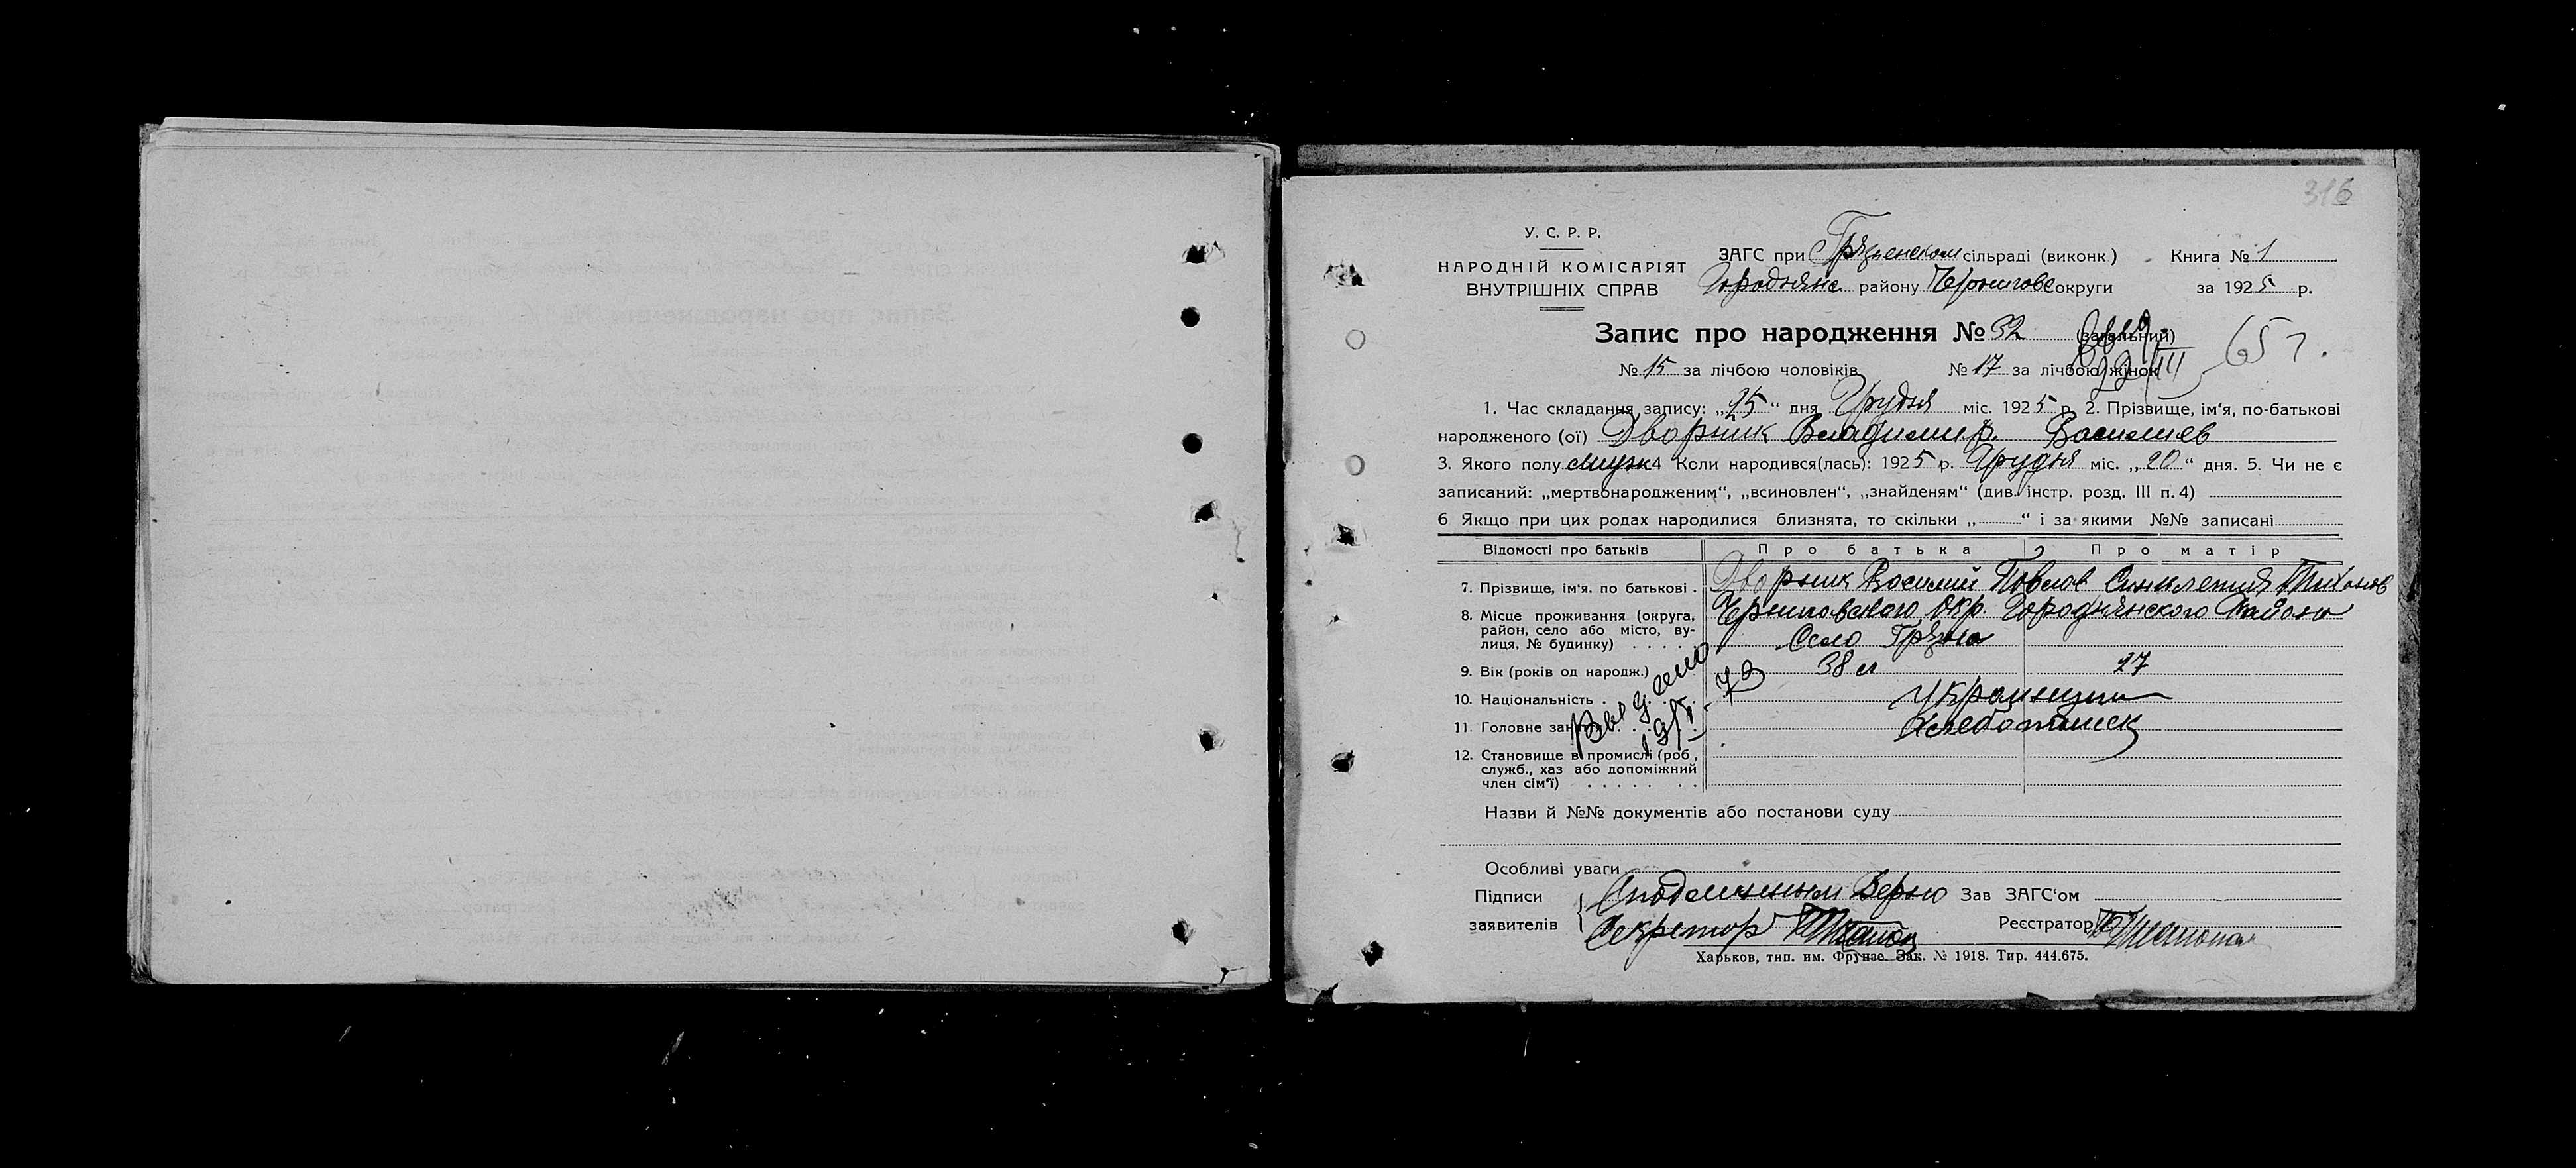 316
У. С. Р. Р.
НАРОДНІЙ КОМІСАРІЯТ
ВНУТРІШНІХ СПРАВ
ЗАГС при Грязненском сільраді (виконк.) Книга № 1
Городнянс району Черниговс округи за 1925 р.
Запис про народження № 32 (загальний)
65 г.
№ 15 за лічбою чоловіків № 17 за лічбою жінок
1. Час складання запису: „25“ дня Грудня міс. 1925 р. 2. Прізвище, ім‘я, по-батькові
народженого (ої) Дворник Владимир. Василиев
3. Якого полу мужк 4 Коли народився(лась): 1925 р. Грудня міс. „20“ дня. 5. Чи не є
записаний: „мертвонародженим“, „всиновлен“, „знайденям“ (див. інстр. розд. III п. 4)
6 Якщо при цих родах народилися близнята, то скільки „ “ і за якими №№ записані
Відомості про батьків Про батька Про матір
7. Прізвище, ім‘я. по батькові . Дворник Василий Павлов Синклетия Тихонов
8. Місце проживання (округа, район, село або місто, вулиця, № будинку) Черниговского Окр. Городнянского Району
Село Грязна
9. Вік (років од народж.) 38 л 27
10. Національність . Украинцы
11. Головне заняття . Хлебопашеск
12. Становище в промислі (роб., служб., хаз або допоміжний член сім‘ї)
Назви й №№ документів або постанови суду
Особливі уваги
Підписи заявителів
Верно Зав ЗАГС‘ом
Секретор Реєстратор
Харьков, тип. им. Фрунзе. Зак. № 1918. Тир. 444.675.